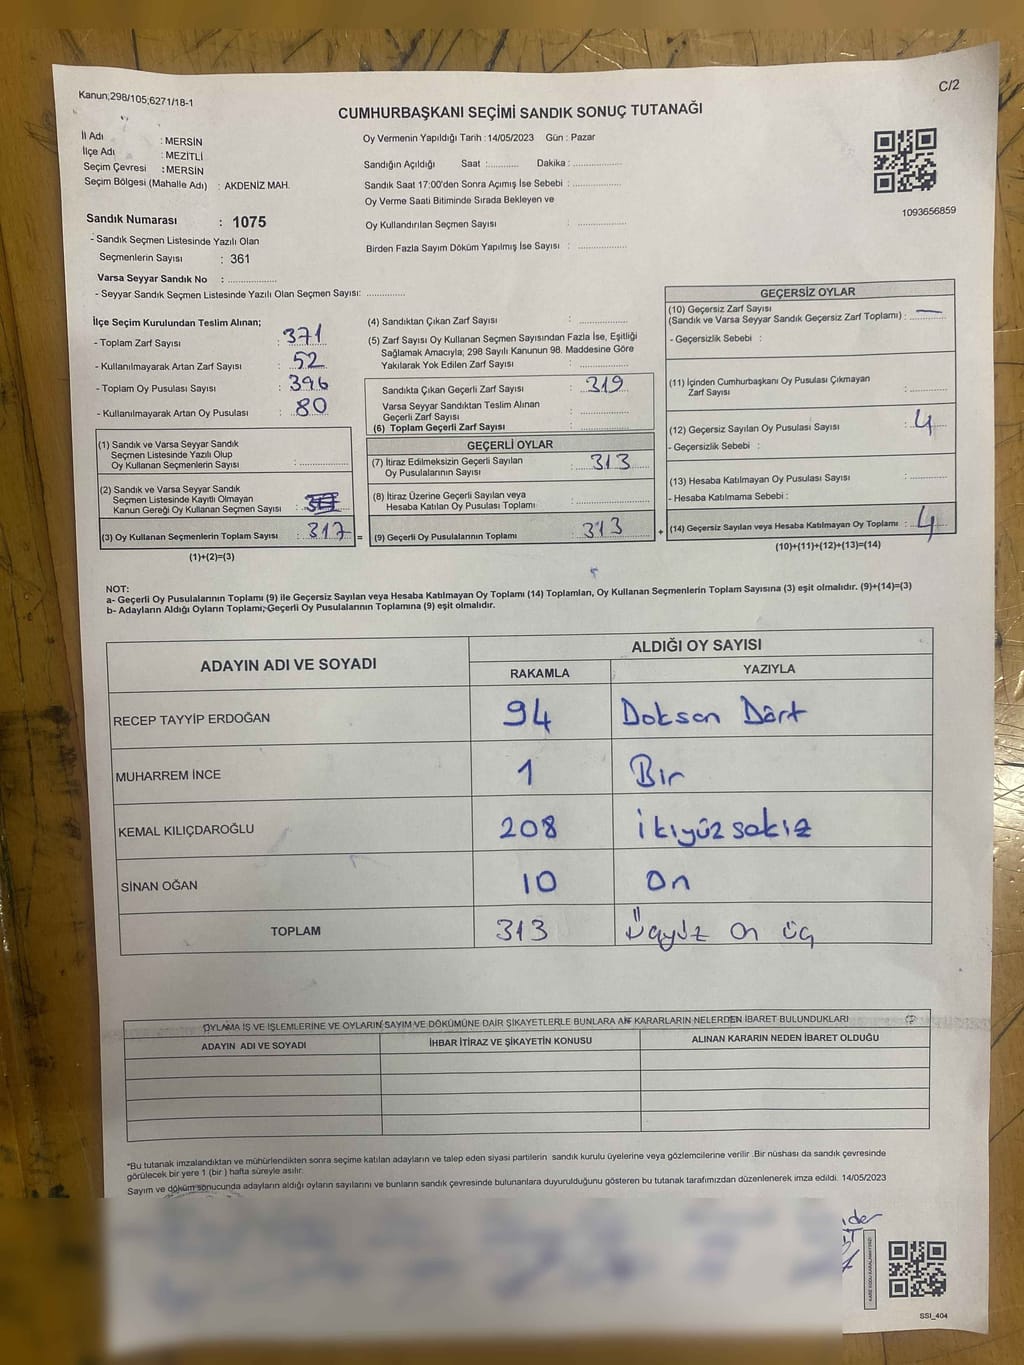 Kanun;298/105;6271/18-1
C/2
CUMHURBAŞKANI SEÇİMİ SANDIK SONUÇ TUTANAĞI
İl Adı : MERSİN
İlçe Adı : MEZİTLİ
Seçim Çevresi : MERSİN
Seçim Bölgesi (Mahalle Adı) : AKDENİZ MAH.
Sandık Numarası : 1075
- Sandık Seçmen Listesinde Yazılı Olan
Seçmenlerin Sayısı : 361
Varsa Seyyar Sandık No : ..............
- Seyyar Sandık Seçmen Listesinde Yazılı Olan Seçmen Sayısı: ............
Oy Vermenin Yapıldığı Tarih : 14/05/2023 Gün : Pazar
Sandığın Açıldığı Saat :........... Dakika : ................
Sandık Saat 17:00'den Sonra Açımış İse Sebebi : ................
Oy Verme Saati Bitiminde Sırada Bekleyen ve
Oy Kullandırılan Seçmen Sayısı : ................
Birden Fazla Sayım Döküm Yapılmış İse Sayısı : ................
1093656859
İlçe Seçim Kurulundan Teslim Alınan;
- Toplam Zarf Sayısı : 371
- Kullanılmayarak Artan Zarf Sayısı : 52
- Toplam Oy Pusulası Sayısı : 396
- Kullanılmayarak Artan Oy Pusulası : 80
(1) Sandık ve Varsa Seyyar Sandık
Seçmen Listesinde Yazılı Olup
Oy Kullanan Seçmenlerin Sayısı : ................
(2) Sandık ve Varsa Seyyar Sandık
Seçmen Listesinde Kayıtlı Olmayan
Kanun Gereği Oy Kullanan Seçmen Sayısı :
(3) Oy Kullanan Seçmenlerin Toplam Sayısı : 317 =
(1)+(2)=(3)
(4) Sandıktan Çıkan Zarf Sayısı : ................
(5) Zarf Sayısı Oy Kullanan Seçmen Sayısından Fazla İse, Eşitliği
Sağlamak Amacıyla; 298 Sayılı Kanunun 98. Maddesine Göre
Yakılarak Yok Edilen Zarf Sayısı : ................
Sandıkta Çıkan Geçerli Zarf Sayısı : 319
Varsa Seyyar Sandıktan Teslim Alınan
Geçerli Zarf Sayısı : ................
(6) Toplam Geçerli Zarf Sayısı : ................
GEÇERLİ OYLAR
(7) İtiraz Edilmeksizin Geçerli Sayılan
Oy Pusulalarının Sayısı : 313
(8) İtiraz Üzerine Geçerli Sayılan veya
Hesaba Katılan Oy Pusulası Toplamı : ................
(9) Geçerli Oy Pusulalarının Toplamı : 313 +
GEÇERSİZ OYLAR
(10) Geçersiz Zarf Sayısı
(Sandık ve Varsa Seyyar Sandık Geçersiz Zarf Toplamı) : —
- Geçersizlik Sebebi :
(11) İçinden Cumhurbaşkanı Oy Pusulası Çıkmayan
Zarf Sayısı : ............
(12) Geçersiz Sayılan Oy Pusulası Sayısı : 4
- Geçersizlik Sebebi :
(13) Hesaba Katılmayan Oy Pusulası Sayısı : ............
- Hesaba Katılmama Sebebi :
(14) Geçersiz Sayılan veya Hesaba Katılmayan Oy Toplamı : 4
(10)+(11)+(12)+(13)=(14)
NOT:
a- Geçerli Oy Pusulalarının Toplamı (9) ile Geçersiz Sayılan veya Hesaba Katılmayan Oy Toplamı (14) Toplamları, Oy Kullanan Seçmenlerin Toplam Sayısına (3) eşit olmalıdır. (9)+(14)=(3)
b- Adayların Aldığı Oyların Toplamı; Geçerli Oy Pusulalarının Toplamına (9) eşit olmalıdır.
ADAYIN ADI VE SOYADI
ALDIĞI OY SAYISI
RAKAMLA YAZIYLA
RECEP TAYYİP ERDOĞAN 94 Doksan Dört
MUHARREM İNCE 1 Bir
KEMAL KILIÇDAROĞLU 208 ikiyüz sekiz
SİNAN OĞAN 10 On
TOPLAM 313 Üçyüz on üç
OYLAMA İŞ VE İŞLEMLERİNE VE OYLARIN SAYIM VE DÖKÜMÜNE DAİR ŞİKAYETLERLE BUNLARA AİT KARARLARIN NELERDEN İBARET BULUNDUKLARI
ADAYIN ADI VE SOYADI İHBAR İTİRAZ VE ŞİKAYETİN KONUSU ALINAN KARARIN NEDEN İBARET OLDUĞU
*Bu tutanak imzalandıktan ve mühürlendikten sonra seçime katılan adayların ve talep eden siyasi partilerin sandık kurulu üyelerine veya gözlemcilerine verilir .Bir nüshası da sandık çevresinde
görülecek bir yere 1 (bir ) hafta süreyle asılır.
Sayım ve döküm sonucunda adayların aldığı oyların sayılarını ve bunların sandık çevresinde bulunanlara duyurulduğunu gösteren bu tutanak tarafımızdan düzenlenerek imza edildi. 14/05/2023
SSI_404